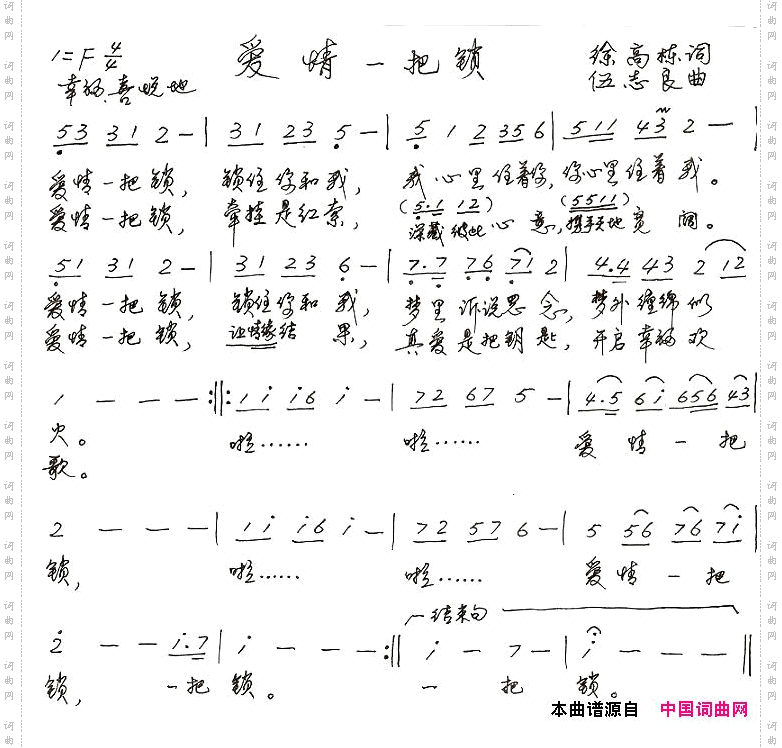 爱情一把锁
1=F 4/4
徐高栋词
幸福、喜悦地
伍志良曲
53 31 2 — | 31 23 5 — | 5 1 2 35 6 | 511 43 2 — |
爱情一把锁, 锁住你和我, 我心里住着你, 你心里住着我。
(5.1 12) (5511)
爱情一把锁, 牵挂是红索, 深藏彼此心意, 携手天地宽阔。
51 31 2 — | 31 23 6 — | 7.7 76 71 2 | 4.4 43 2 12
爱情一把锁, 锁住你和我, 梦里诉说思念, 梦外缠绵似
爱情一把锁, 让情缘结果, 真爱是把钥匙, 开启幸福欢
1 — — — :||: 1i i6 i — | 72 67 5 — | 4.5 6i 656 43 |
火。 啦…… 啦…… 爱情一把
歌。
2 — — — | 1i i6 i — | 72 57 6 — | 5 56 76 7i |
锁, 啦…… 啦…… 爱情一把
结束句
2 — — i.7 | i — — — :|| i — 7 — | i — — — ||
锁, 一把锁。 一把锁。
本曲谱源自 中国词曲网
词曲网